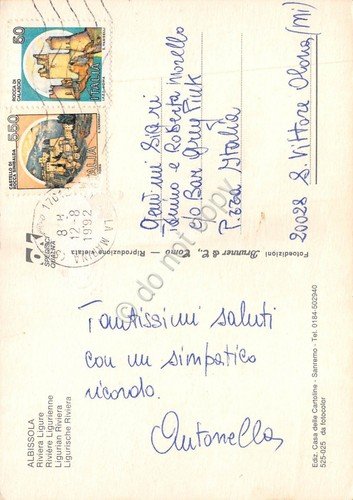 50
ROCCA DI
CALASCIO
ITALIA
550
CASTELLO DI
ROCCA SINIBALDA
ITALIA
8 8
12-8
1992
Gent.mi Sig.ri
Tonino e Roberta Morello
c/o Bar Grey Pink
P.zza Italia
20028 S. Vittore Olona (Mi)
Fotoedizioni Brunner & C., Como - Riproduzione vietata
do not copy
Tantissimi saluti
con un simpatico
ricordo.
Antonella
ALBISSOLA
Riviera Ligure
Rivière Ligurienne
Ligurian Riviera
Ligurische Riviera
Ediz. Casa delle Cartoline - Sanremo - Tel. 0184-502940
525-025 da fotocolor